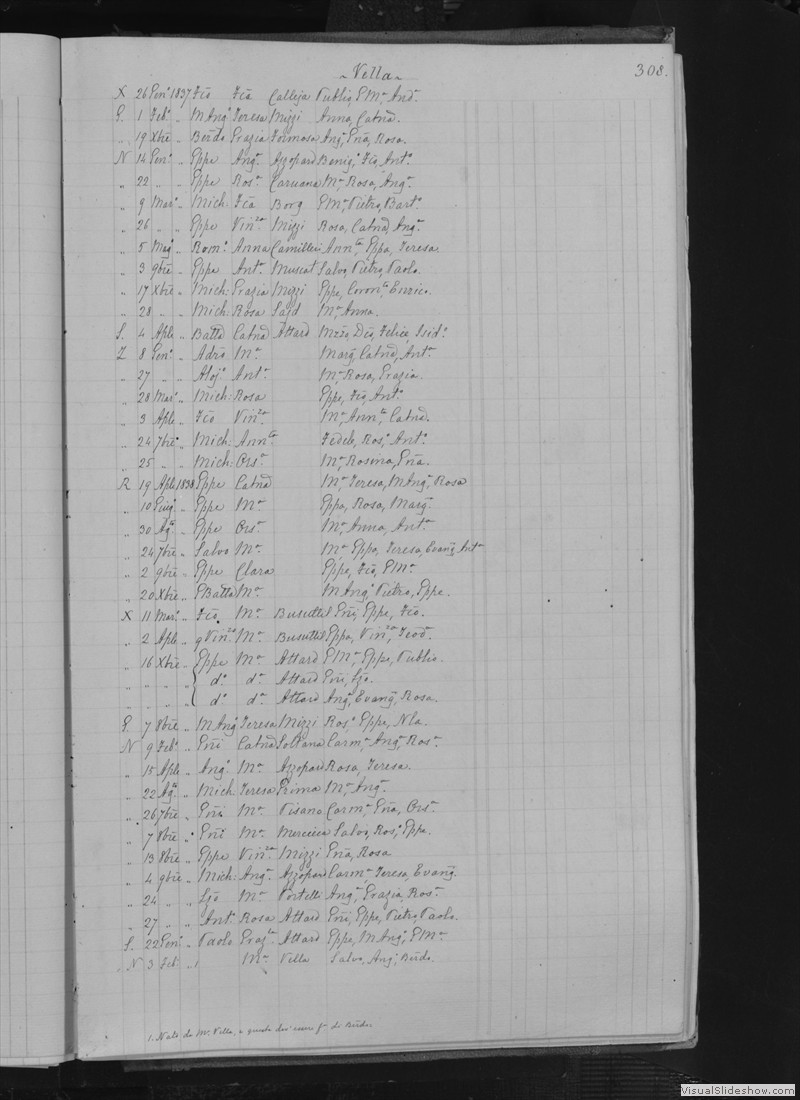 308.
~ Vella ~
X 26 Gen.º 1837 Fcõ Fcã Calleja Publio, GMª, And.ª
G. 1 Feb.º „ MAng.ª Teresa Mizzi Anna, Catnã.
„ 19 Xbre „ Berdõ Grazia Formosa Ang.ª, Gnã, Rosa.
N 14 Gen.º „ Gppe Ang.ª Azzopard Benig.ª, Fcõ, Ant.º
„ 22 „ „ Gppe Ros.ª Caruana Mª, Rosa, Ang.ª
„ 9 Mar.º „ Mich: Fcã Borg GMª, Pietro, Bart.º
„ 26 „ „ Gppe Vin.za Mizzi Rosa, Catnã, Ang.ª
„ 5 Mag.º „ Rom.º Anna Camilleri Ann.ta, Gppa, Teresa.
„ 3 9bre „ Gppe Ant.ª Muscat Salvo, Pietro, Paolo.
„ 17 Xbre „ Mich: Grazia Mizzi Gppe, Coron.ta, Enrico.
„ 28 „ „ Mich: Rosa Sajd Mª, Anna.
S. 4 Aple „ Batta Catnã Attard Felice Isid.º
Z 8 Gen.º „ Adrõ Mª Marg̃, Catnã, Ant.ª
„ 27 „ „ Aloj.º Ant.ª Mª, Rosa, Grazia.
„ 28 Mar.º „ Mich: Rosa Gppe, Fcõ, Ant.º
„ 3 Aple „ Fcõ Vin.za Mª, Ann.ta, Catnã.
„ 24 7bre „ Mich: Ann.ta Fedele, Ros.º, Ant.º
„ 25 „ „ Mich: Ors.ª Mª, Rosina, Gnã.
R 19 Aple 1838 Gppe Catnã Mª, Teresa, MAng.ª, Rosa
„ 10 Giug.º „ Gppe Mª Gppa, Rosa, Marg̃.
„ 30 Ag.to „ Gppe Ors.ª Mª, Anna, Ant.ª
„ 24 7bre „ Salvo Mª Mª, Gppa, Teresa, Evang̃, Ant.ª
„ 2 9bre „ Gppe Clara Gppe, Fcõ, GMª.
„ 20 Xbre „ GBatta Mª MAng.º, Pietro, Gppe.
X 11 Mar.º „ Fcõ Mª Busuttil Gnĩ, Gppe, Fcõ.
„ 2 Aple „ Vin.zo Mª Busuttil Gppa, Vin.za, Teod.ª
„ 16 Xbre „ Gppe Mª Attard GMª, Gppe, Publio.
„ „ „ „ d.º d.ª Attard Gnĩ, Ljõ.
„ „ „ „ d.º d.ª Attard Ang.ª, Evang̃, Rosa.
G. 7 8bre „ MAng.º Teresa Mizzi Ros.ª, Gppe, Nla.
N 9 Feb.º „ Gnĩ Catnã Soltana Carm.ª, Ang.ª, Ros.ª
„ 15 Aple „ Ang.º Mª Azzopard Rosa, Teresa.
„ 22 Ag.to „ Mich Teresa Prima Mª, Ang.ª
„ 26 7bre „ Gnĩ Mª Pisano Carm.ª, Gnã, Ors.ª
„ 7 8bre „ Gnĩ Mª Mercieca Salvo, Ros.º, Gppe.
„ 13 8bre „ Gppe Vin.za Mizzi Gnã, Rosa
„ 4 9bre „ Mich: Ang.ª Azzopard Carm.ª, Teresa, Evang̃.
„ 24 „ „ Ljõ Mª Portelli Ang.ª, Grazia, Ros.ª
„ 27 „ „ Ant.º Rosa Attard Gnĩ, Gppe, Pietro, Paolo.
S. 22 Gen.º „ Paolo Graz.la Attard Gppe, MAng.º, GMª
N 3 Feb. „ 1 Mª Vella Salvo, Ang.º, Berdõ.
1. Nato da Mª Vella, e questa dei secº gª di Berdõ.
VisualSlideshow.com